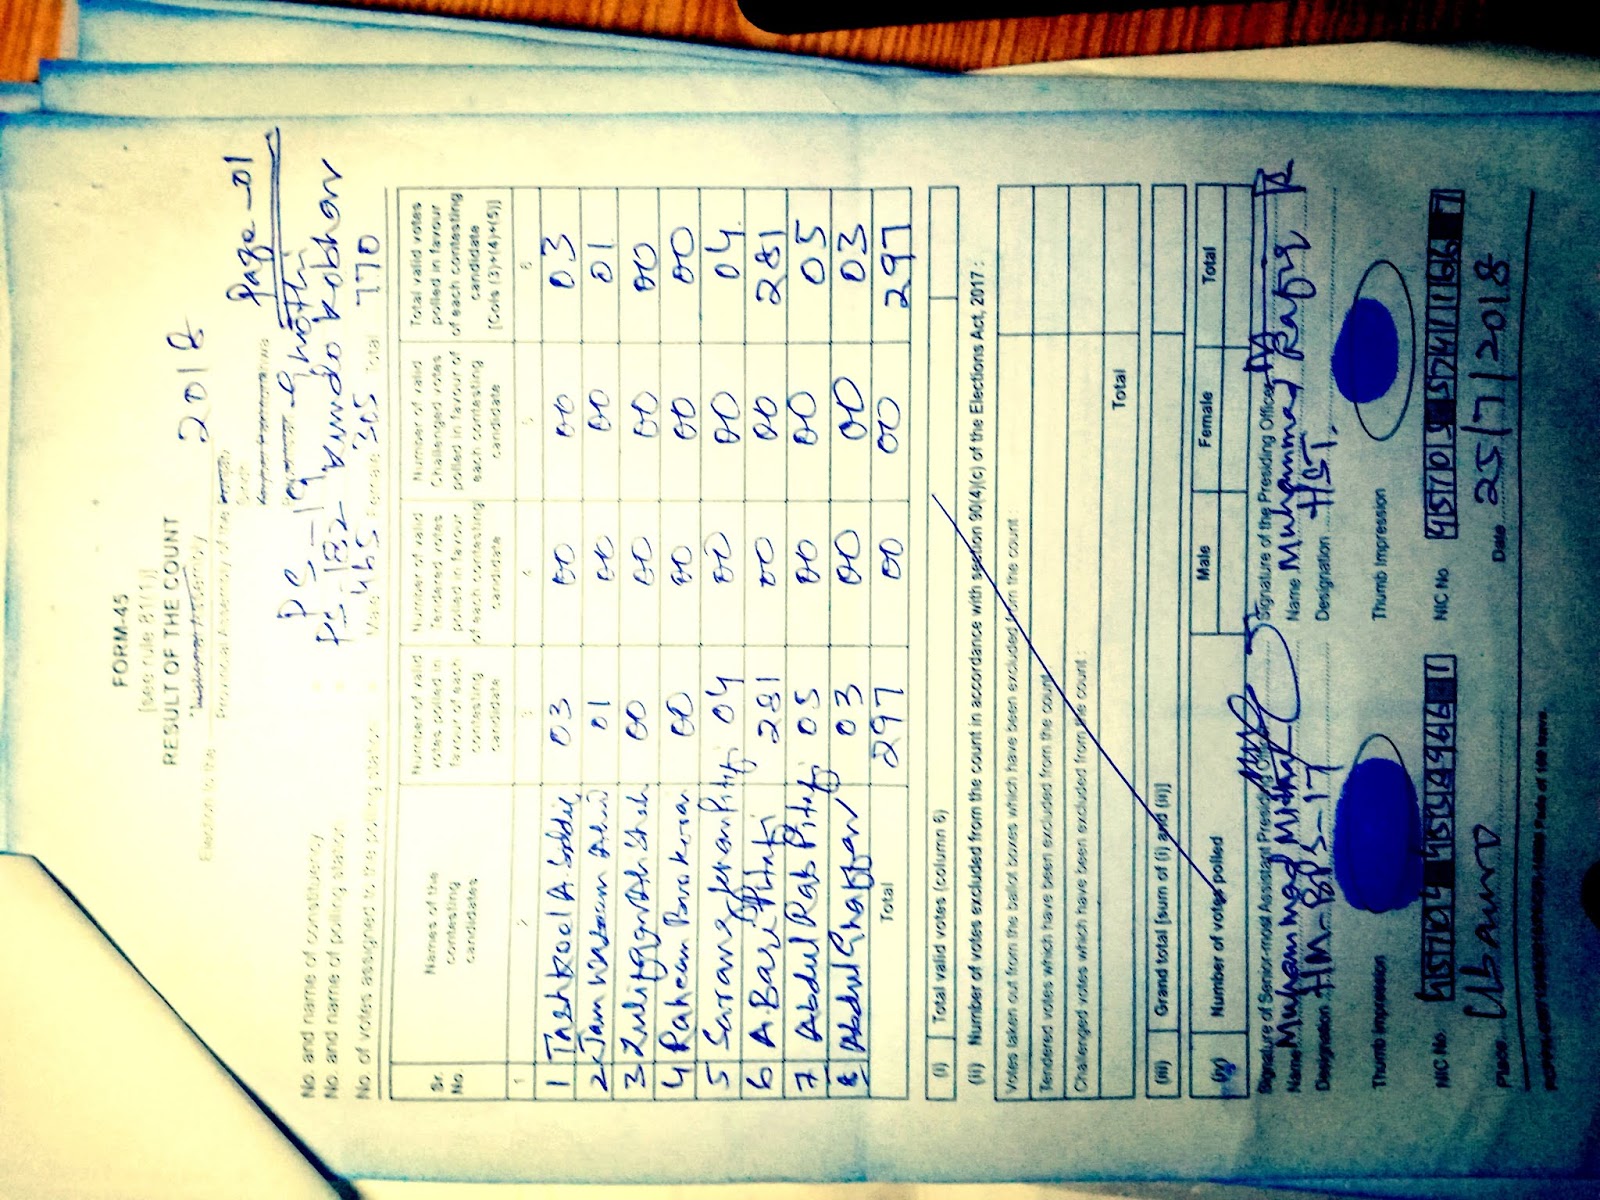 Page - 01
FORM-45
[see rule 81(1)]
RESULT OF THE COUNT
2018
Election to the
Provincial Assembly of the
Sindh
No. and name of constituency
PS - 19 Ghotki
No. and name of polling station
PS - 182 Kundo Kobhar
No. of votes assigned to the polling station Male 465 Female 305 Total 770
Sr. No. Names of the contesting candidates Number of valid votes polled in favour of each contesting candidate Number of valid Tendered votes polled in favour of each contesting candidate Number of valid Challenged votes polled in favour of each contesting candidate Total valid votes polled in favour of each contesting candidate [Cols (3)+(4)+(5)]
1 2 3 4 5 6
1 03 00 00 03
2 Jam 01 00 00 01
3 Zulifqar Ali Shah 00 00 00 00
4 Raheem Bux 00 00 00 00
5 Sarang 04 00 00 04
6 A. Bari Pitafi 281 00 00 281
7 Abdul Rab Pitafi 05 00 00 05
8 Abdul Ghaffar 03 00 00 03
Total 297 00 00 297
(i) Total valid votes (column 6)
(ii) Number of votes excluded from the count in accordance with section 90(4)(c) of the Elections Act, 2017 :
Votes taken out from the ballot boxes which have been excluded from the count :
Tendered votes which have been excluded from the count :
Challenged votes which have been excluded from the count :
Total
(iii) Grand total [sum of (i) and (ii)]
(iv) Number of votes polled Male Female Total
Signature of Senior-most Assistant Presiding Officer
Signature of the Presiding Officer
Name Muhammad
Name Muhammad Rafiq
Designation HM - BPS - 17
Designation HST.
Thumb Impression
Thumb Impression
NIC No.
NIC No.
Place Ubauro
Date 25/7/2018